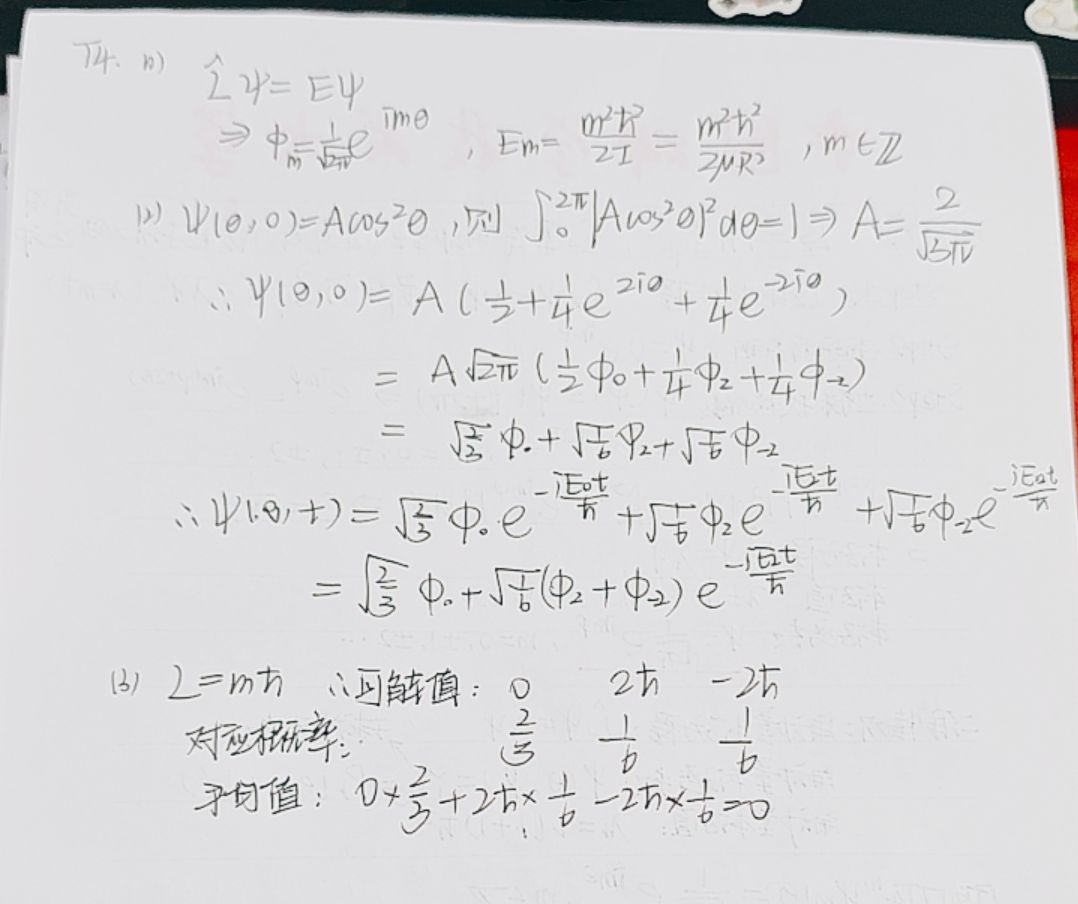 T4. (1) L̂ψ = Eψ
⇒ φ_m = 1/√(2π) e^{imθ}, E_m = m²ħ²/2I = m²ħ²/2μR², m∈ℤ
(2) ψ(θ,0)=Acos²θ,则 ∫₀^{2π}|Acos²θ|²dθ=1 ⇒ A= 2/√(3π)
∴ ψ(θ,0)= A(1/2+1/4 e^{2iθ}+1/4 e^{-2iθ})
= A√(2π)(1/2 φ₀+1/4 φ₂+1/4 φ₋₂)
= √(2/3) φ₀+√(1/6) φ₂+√(1/6) φ₋₂
∴ψ(θ,t)=√(2/3) φ₀ e^{-iE₀t/ħ}+√(1/6) φ₂ e^{-iE₂t/ħ}+√(1/6) φ₋₂ e^{-iE₂t/ħ}
=√(2/3) φ₀+√(1/6)(φ₂+φ₋₂) e^{-iE₂t/ħ}
(3) L=mħ ∴可能值: 0 2ħ -2ħ
对应概率: 2/3 1/6 1/6
平均值: 0×2/3+2ħ×1/6-2ħ×1/6=0